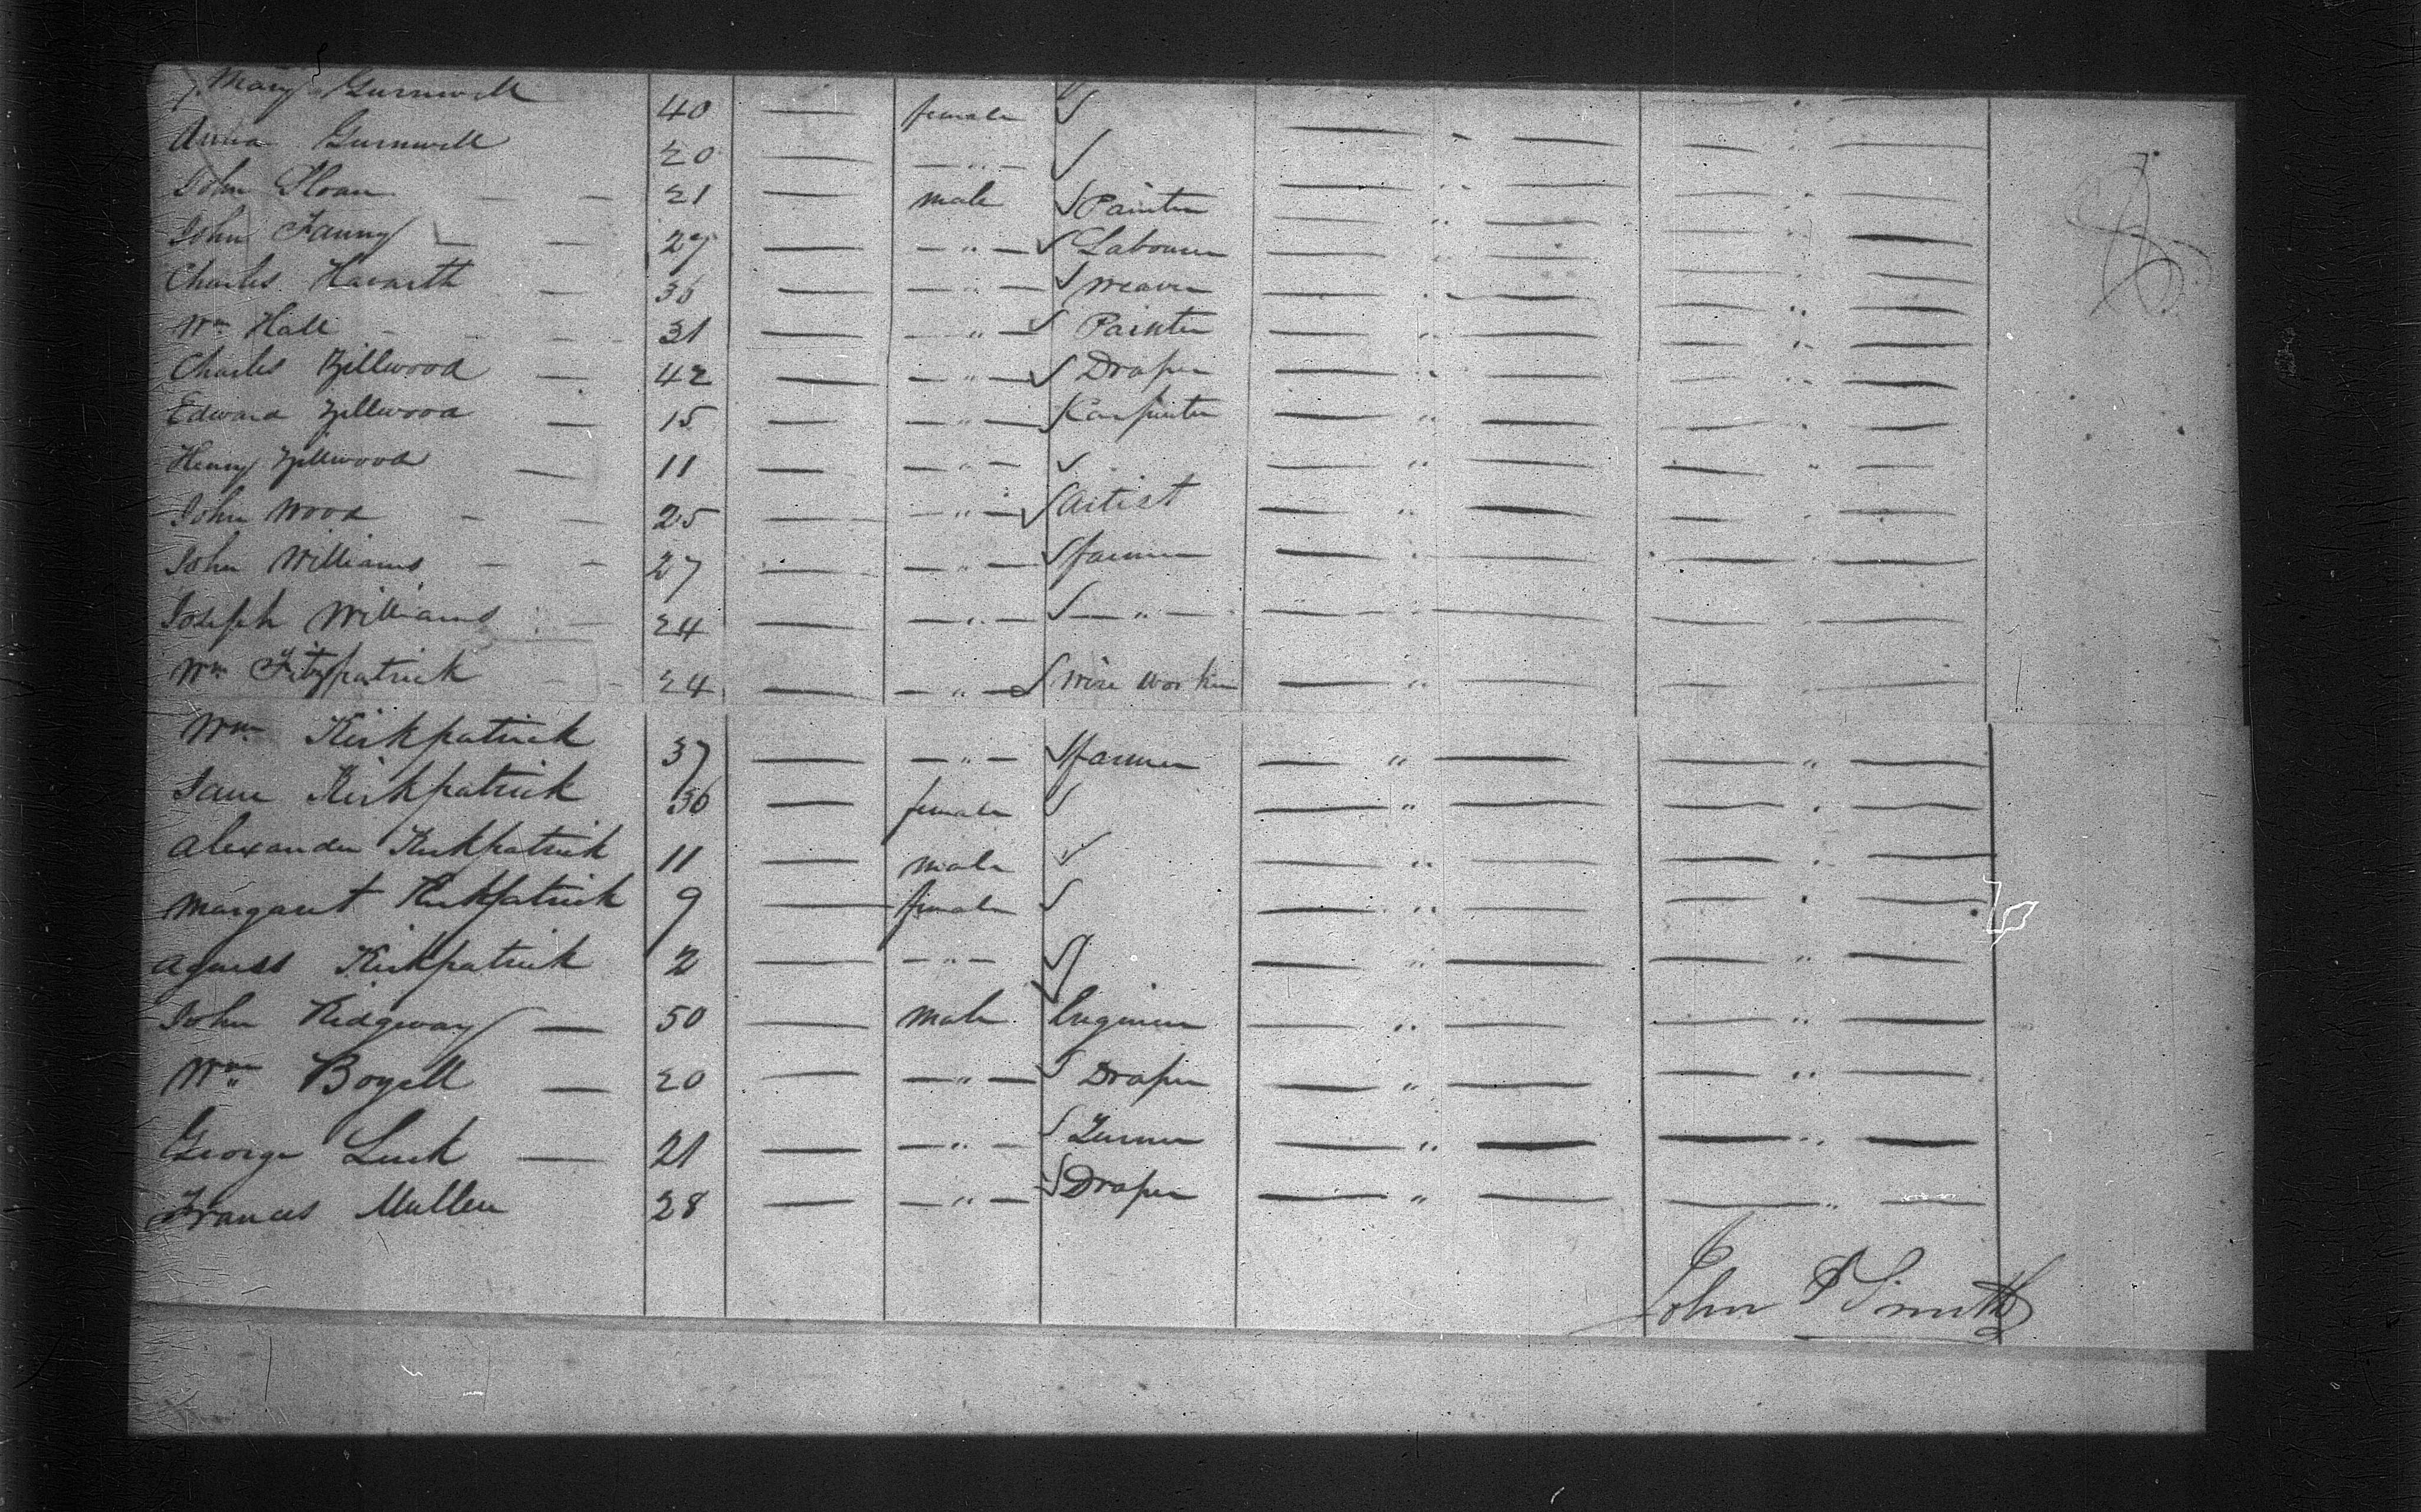 Mary Gurnwell 40 — female ✓ — " — — " —
Anna Gurnwell 20 — — " — ✓ — " — — " —
John Sloan — — 21 — male ✓ Painter — " — — " —
John Fanny — — 27 — — " — ✓ Labourer — " — — " —
Charles Havarth — 36 — — " — ✓ Weaver — " — — " —
Wm Hall — — 31 — — " — ✓ Painter — " — — " —
Charles Zillwood — 42 — — " — ✓ Draper — " — — " —
Edward Zillwood — 15 — — " — ✓ Carpenter — " — — " —
Henry Zillwood — 11 — — " — ✓ — " — — " —
John Wood — — 25 — — " — ✓ Artist — " — — " —
John Williams — — 27 — — " — ✓ farmer — " — — " —
Joseph Williams — 24 — — " — ✓ — " — — " — — " —
Wm Fitzpatrick — 24 — — " — ✓ Wire Worker — " — — " —
Wm Kirkpatrick 37 — — " — ✓ farmer — " — — " —
Jane Kirkpatrick 36 — female ✓ — " — — " —
Alexander Kirkpatrick 11 — male ✓ — " — — " —
Margaret Kirkpatrick 9 — female ✓ — " — — " —
Agness Kirkpatrick 2 — — " — ✓ — " — — " —
John Ridgway — 50 — male ✓ Engineer — " — — " —
Wm Boyell — 20 — — " — ✓ Draper — " — — " —
George Luck — 21 — — " — ✓ Turner — " — — " —
Frances Mullen 28 — — " — ✓ Draper — " — — " —
John P Smith